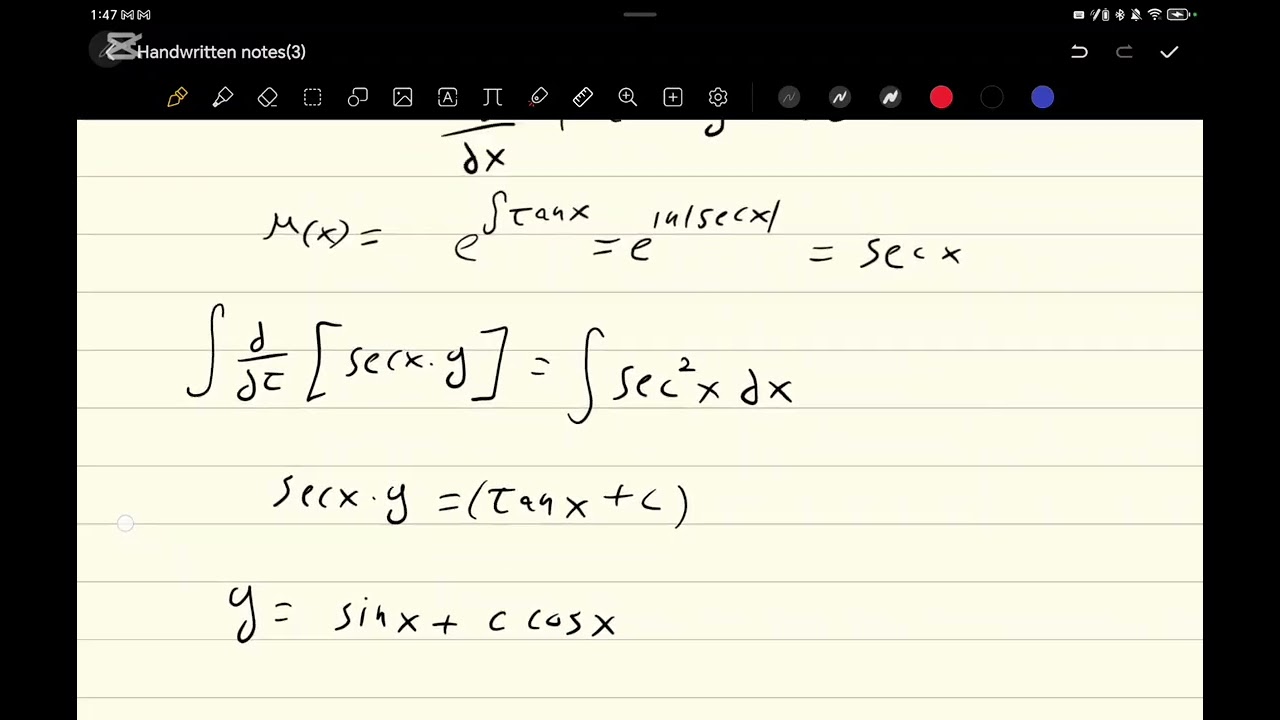 1:47
Handwritten notes(3)
dx
μ(x) = e^∫tanx = e^ln|secx| = secx
∫ d/dt [secx·y] = ∫ sec²x dx
secx·y = (tanx + c)
y = sinx + c cosx